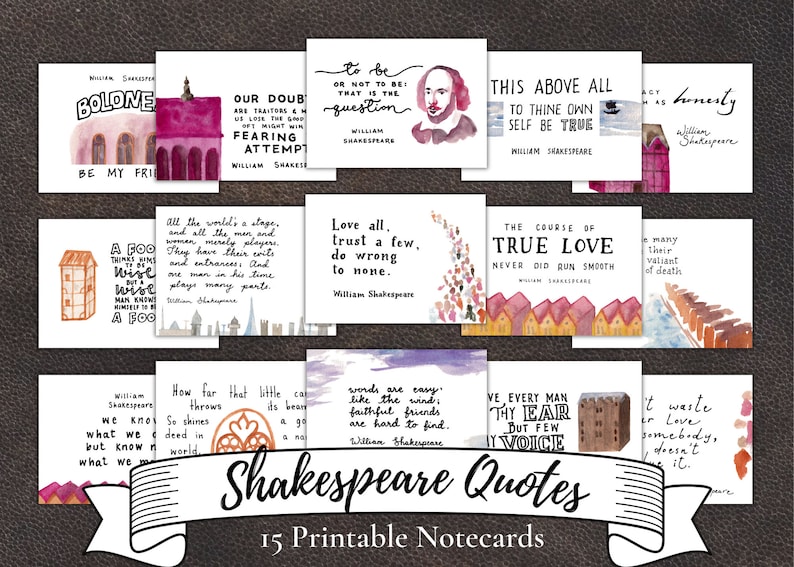 WILLIAM SHAKESPEARE
BOLDNE
BE MY FRIE
OUR DOUBT
ARE TRAITORS &
US LOSE THE GOOD
OFT MIGHT WIN
FEARING
ATTEMPT
WILLIAM SHAKESPEARE
to be
OR NOT TO BE:
THAT IS THE
question
WILLIAM
SHAKESPEARE
THIS ABOVE ALL
TO THINE OWN
SELF BE TRUE
WILLIAM SHAKESPEARE
ACT
AS honesty
William
Shakespeare
A FOO
THINKS HIMS
TO BE
WISE
BUT A
WISE
MAN KNOWS
HIMSELF TO B
A FOO
All the world's a stage,
and all the men and
women merely players.
They have their exits
and entrances; And
one man in his time
plays many parts.
William Shakespeare
Love all,
trust a few,
do wrong
to none.
William Shakespeare
THE COURSE OF
TRUE LOVE
NEVER DID RUN SMOOTH
WILLIAM SHAKESPEARE
e many
their
valiant
of death
William
Shakespeare
we know
what we a
but know n
what we m
How far that little ca
throws its beam
So shines a go
deed in a na
world.
words are easy,
like the wind;
faithful friends
are hard to find.
William Shakespeare
VE EVERY MAN
THY EAR
BUT FEW
VOICE
't waste
r Love
somebody,
doesn't
e it.
peare
Shakespeare Quotes
15 Printable Notecards